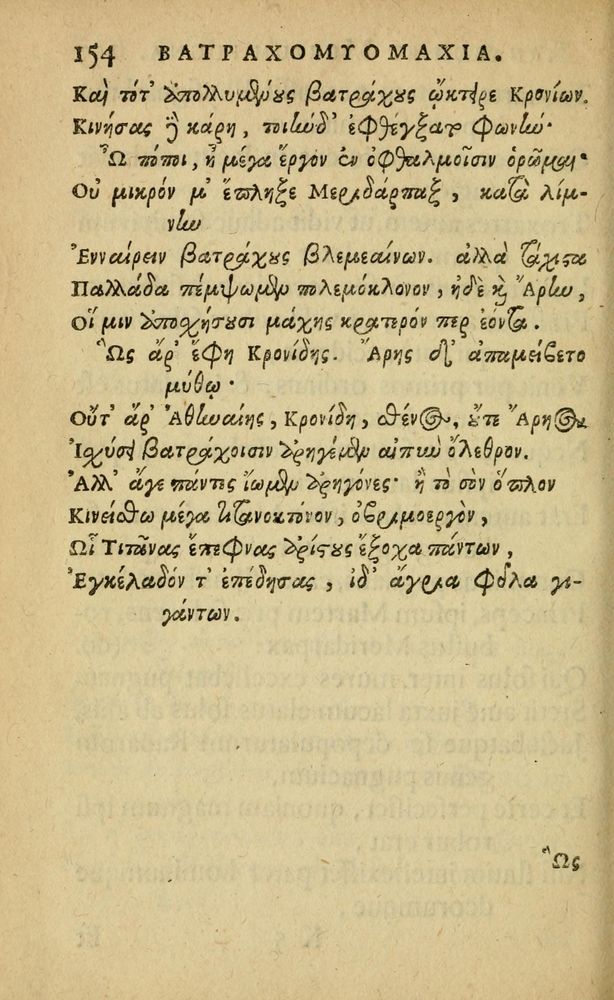 154 ΒΑΤΡΑΧΟΜΥΟΜΑΧΙΑ.
Καὶ τότ' ἀπολλυμένους βατράχους ᾤκτειρε Κρονίων.
Κινήσας δὲ κάρη, τοιὼδ' ἐφθέγξατο φωνίω·
Ὢ πόποι, ἦ μέγα ἔργον ἐν ὀφθαλμοῖσιν ὁρῶμαι·
Οὐ μικρόν μ' ἔπληξε Μεριδάρπαξ, κατὰ λίμ-
νίω
Ἐνναίρειν βατράχους βλεμεαίνων. ἀλλὰ τάχιστα
Παλλάδα πέμψωμεν πολεμόκλονον, ἠδὲ καὶ Ἄρίω,
Οἵ μιν ἀποσχήσουσι μάχης κρατερόν περ ἐόντα.
Ὣς ἄρ' ἔφη Κρονίδης. Ἄρης δ' ἀπαμείβετο
μύθῳ·
Οὔτ' ἄρ' Ἀθηναίης, Κρονίδη, σθένος, οὔτε Ἄρηος
Ἰσχύσει βατράχοισιν ἀρηγέμεν αἰπιὼ ὄλεθρον.
Ἀλλ' ἄγε πάντες ἴωμεν ἀρηγόνες· ἢ τὸ σὸν ὅπλον
Κινείσθω μέγα τιτανοκτόνον, ὀβριμοεργὸν,
Ὧι Τιτᾶνας ἔπεφνας ἀρίστους ἔξοχα πάντων,
Ἐγκέλαδόν τ' ἐπέδησας, ἰδ' ἄγρια φῦλα γι-
γάντων.
Ὣς